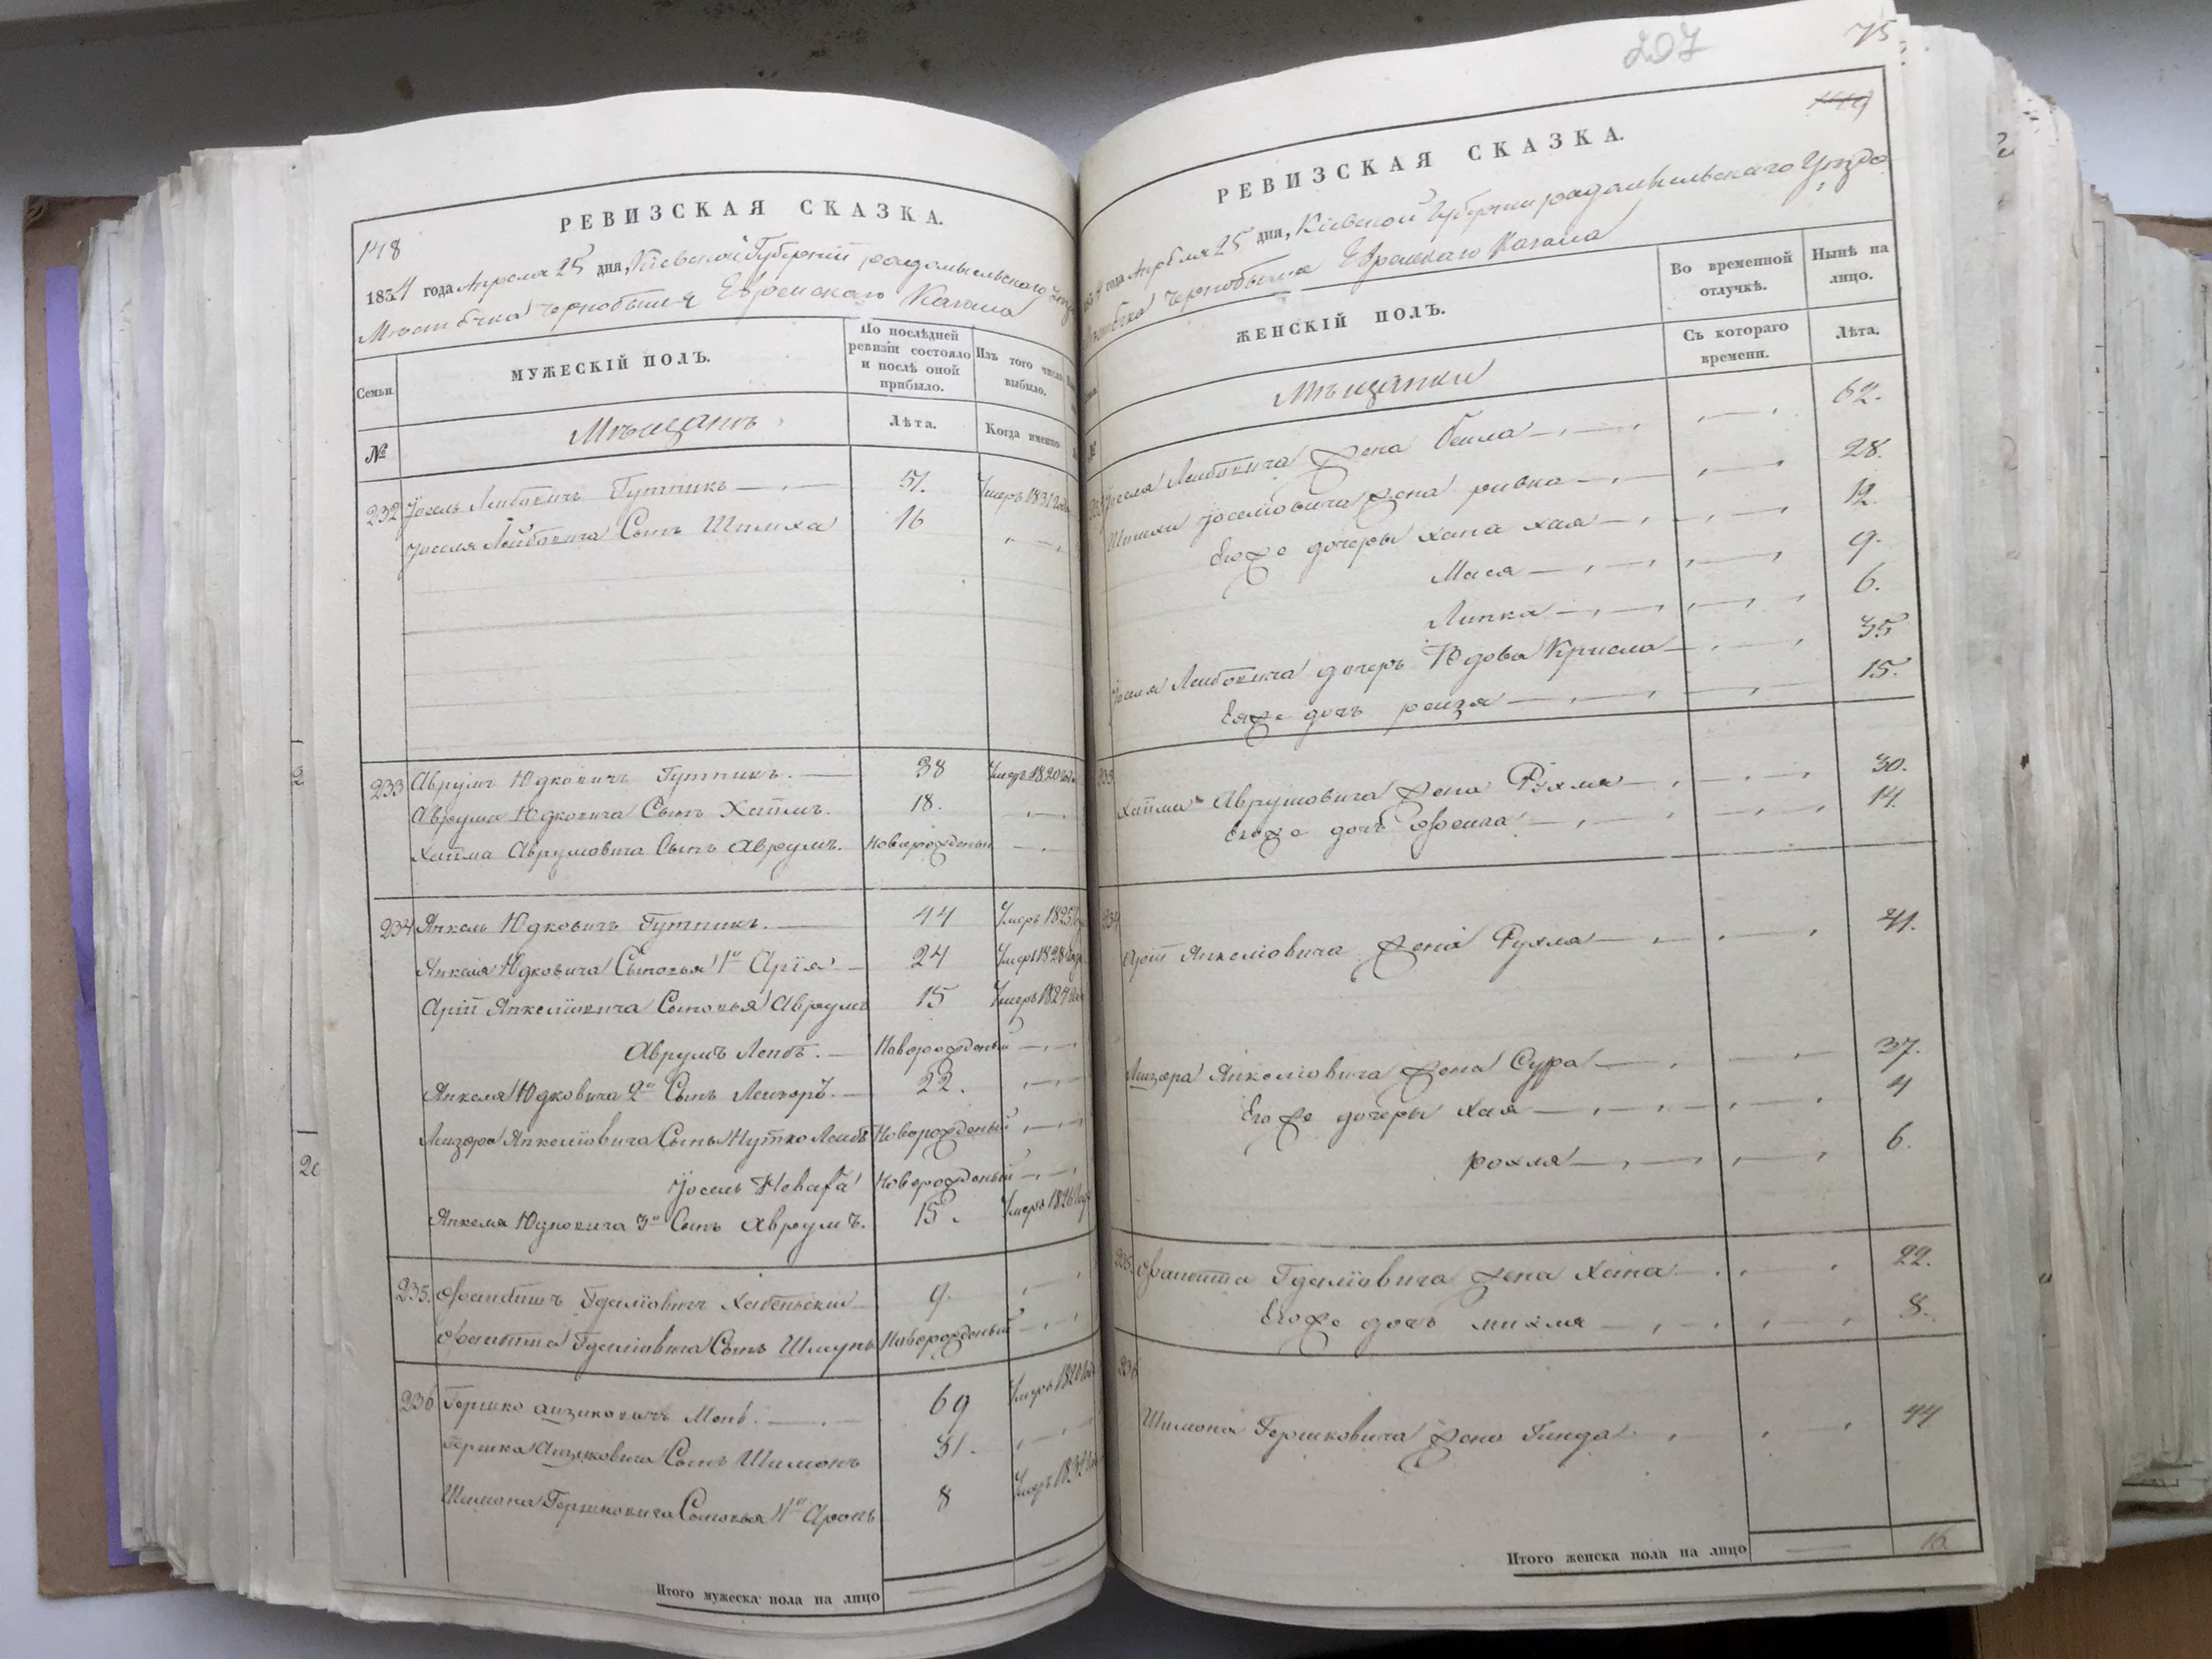 РЕВИЗСКАЯ СКАЗКА.
148
1834 года Апреля 25 дня, Кіевской Губерніи радомысльского
Мѣстечка Чернобыля Еврейскаго Кагала
Семьи.
МУЖЕСКІЙ ПОЛЪ.
По послѣдней ревизіи состояло и послѣ оной прибыло.
Изъ того числа выбыло.
№
Мѣщанъ
Лѣта.
Когда именно.
232 Іосель Лейбовичъ Гутникъ 51. Умеръ 1831 года
Іоселя Лейбовича Сынъ Шлиха 16
233 Аврумъ Юдковичъ Гутникъ. 38 Умеръ 1820 года
Аврума Юдковича Сынъ Хаимъ. 18.
Хаима Аврумовича Сынъ Аврумъ. Новорожденый
234 Янкель Юдковичъ Гутникъ. 44 Умеръ 1825
Янкеля Юдковича Сыновья 1й Арія 24 Умеръ 1828 года
Аріи Янкеліовича Сыновья Аврумъ 15 Умеръ 1824 года
Аврумъ Лейбъ. Новорожденый
Янкеля Юдковича 2й Сынъ Лейзоръ. 22.
Лизора Янкеліовича Сынъ Нутко Лейбъ Новорожденый
Іосель Новорожденый
Янкеля Юдковича 3й Сынъ Аврумъ. 15. Умеръ 1826 года
235. Файбишъ 9.
Сынъ Шмунь Новорожденый
236 Гершко Айзиковичъ 69 Умеръ 1820 года
Гершка Айзиковича Сынъ Шимонъ 31.
Шимона Гершковича Сыновья 1й Аронъ 8
Итого мужеска пола на лицо
207
75
РЕВИЗСКАЯ СКАЗКА.
1834 года Апреля 25 дня, Кіевской Губерніи радомысльскаго Уѣзда
Мѣстечка Чернобыля Еврейскаго Кагала
ЖЕНСКІЙ ПОЛЪ.
Во временной отлучкѣ.
Нынѣ на лицо.
Съ котораго времени.
Лѣта.
Мѣщанки
Іоселя Лейбовича жена Бейла 62.
Шлихи Іоселіовича жена ривка 28.
Егоже дочеры хана хая 12.
Мася 9.
Липка 6.
Іоселя Лейбовича дочерь Вдова 35
Еяже дочь рейзя 15.
233 Хаима Аврумовича жена Рухля 30.
Егоже дочь Фейга 14.
234 Аріи Янкеліовича жена Рухля 41.
Лизора Янкеліовича жена Сура 37.
Егоже дочеры хая 4
рохля 6.
235. жена Хана 22.
Егоже дочь михля 8.
236 Шимона Гершковича жена Гинда 44
Итого женска пола на лицо 16.